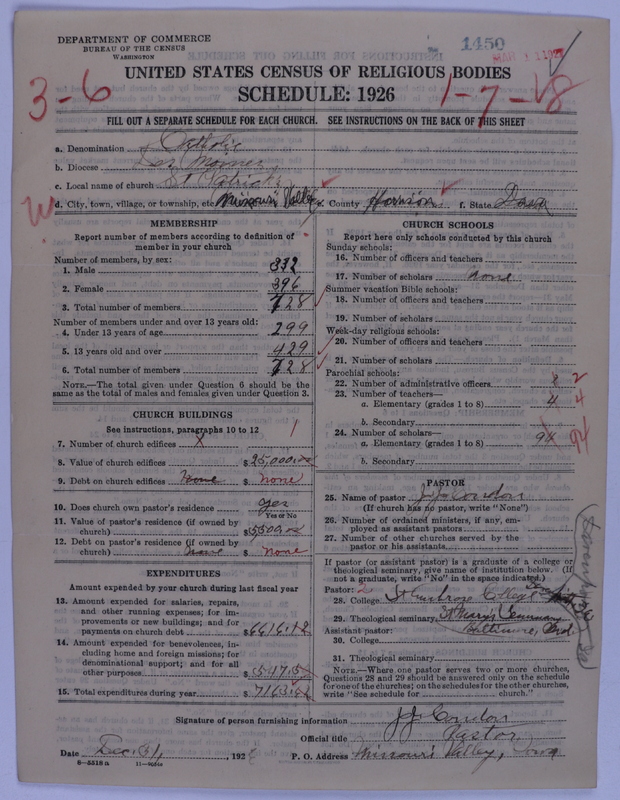 DEPARTMENT OF COMMERCE
BUREAU OF THE CENSUS
WASHINGTON
1450
UNITED STATES CENSUS OF RELIGIOUS BODIES
SCHEDULE: 1926
3-6
1-7-8
FILL OUT A SEPARATE SCHEDULE FOR EACH CHURCH. SEE INSTRUCTIONS ON THE BACK OF THIS SHEET
a. Denomination Catholic
b. Diocese Des Moines
c. Local name of church St Patricks
d. City, town, village, or township, etc. Missouri Valley e. County Harrison f. State Iowa
MEMBERSHIP
Report number of members according to definition of
member in your church
Number of members, by sex:
1. Male 332
2. Female 396
3. Total number of members 728
Number of members under and over 13 years old:
4. Under 13 years of age 299
5. 13 years old and over 429
6. Total number of members 728
NOTE.—The total given under Question 6 should be the
same as the total of males and females given under Question 3.
CHURCH BUILDINGS
See instructions, paragraphs 10 to 12
7. Number of church edifices 1
8. Value of church edifices $25,000.00
9. Debt on church edifices None $ none
10. Does church own pastor's residence yes
Yes or No
11. Value of pastor's residence (if owned by
church) $5500.00
12. Debt on pastor's residence (if owned by
church) None $ none
EXPENDITURES
Amount expended by your church during last fiscal year
13. Amount expended for salaries, repairs,
and other running expenses; for im-
provements or new buildings; and for
payments on church debt $6616.12
14. Amount expended for benevolences, in-
cluding home and foreign missions; for
denominational support; and for all
other purposes $547.5
15. Total expenditures during year $7163.62
CHURCH SCHOOLS
Report here only schools conducted by this church
Sunday schools:
16. Number of officers and teachers
17. Number of scholars none
Summer vacation Bible schools:
18. Number of officers and teachers
19. Number of scholars
Week-day religious schools:
20. Number of officers and teachers
21. Number of scholars
Parochial schools:
22. Number of administrative officers 2
23. Number of teachers—
a. Elementary (grades 1 to 8) 4 4
b. Secondary
24. Number of scholars—
a. Elementary (grades 1 to 8) 94 94
b. Secondary
PASTOR
25. Name of pastor J J Condon
(If church has no pastor, write "None")
26. Number of ordained ministers, if any, em-
ployed as assistant pastors
27. Number of other churches served by the
pastor or his assistants
If pastor (or assistant pastor) is a graduate of a college or
theological seminary, give name of institution below. (If
not a graduate, write "No" in the space indicated.)
Pastor: 2
28. College St Ambrose College
29. Theological seminary St Mary's Seminary
Assistant pastor: Baltimore, Md.
30. College
31. Theological seminary
NOTE.—Where one pastor serves two or more churches,
Questions 28 and 29 should be answered only on the schedule
for one of the churches; on the schedules for the other churches,
write "See schedule for church."
Signature of person furnishing information J J Condon
Official title Pastor
Date Dec. 31, 192
P. O. Address Missouri Valley, Iowa
8—5518 a